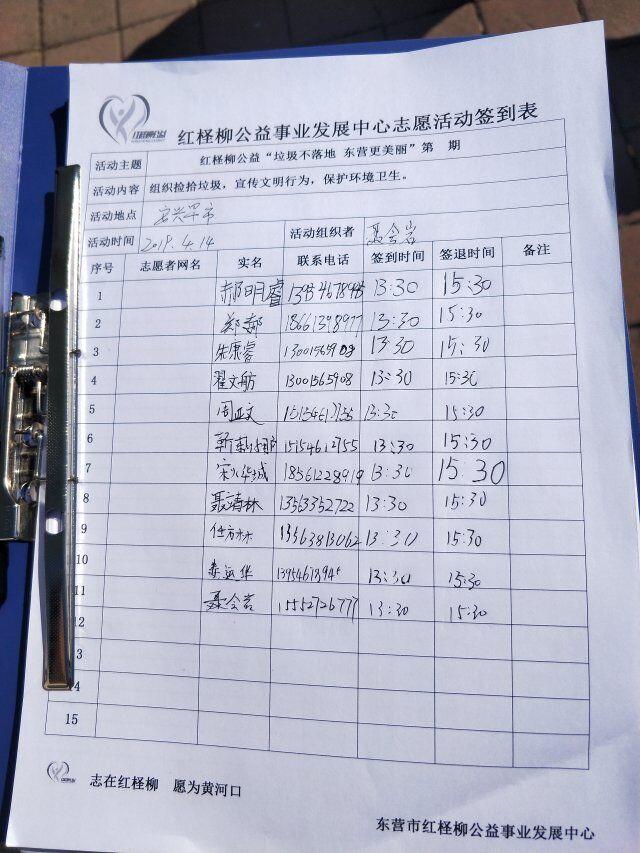 红柽柳公益事业发展中心志愿活动签到表
活动主题 红柽柳公益“垃圾不落地 东营更美丽”第 期
活动内容 组织捡拾垃圾，宣传文明行为，保护环境卫生。
活动地点
活动时间 2019.4.14 活动组织者 聂会岩
序号 志愿者网名 实名 联系电话 签到时间 签退时间 备注
1 郝明睿 13:30 15:30
2 18661398977 13:30 15:30
3 朱康睿 13:30 15:30
4 翟文舫 13001565908 13:30 15:30
5 周正文 13:30 15:30
6 15154612755 13:30 15:30
7 18561228919 13:30 15:30
8 聂清林 13563352722 13:30 15:30
9 任方林 13563813062 13:30 15:30
10 13:30 15:30
11 聂会岩 15552726777 13:30 15:30
12
3
14
15
志在红柽柳 愿为黄河口
东营市红柽柳公益事业发展中心